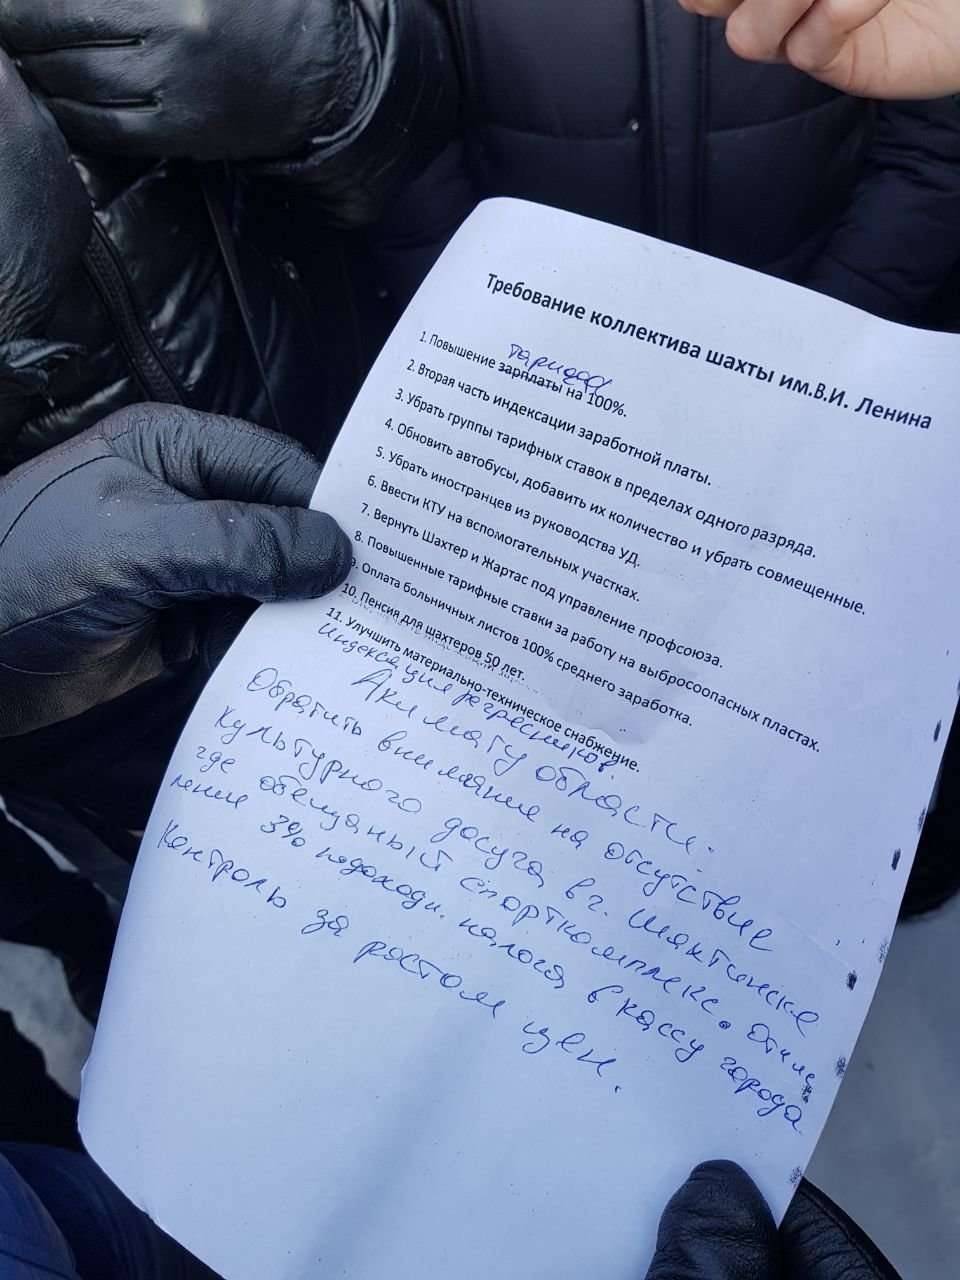 Требование коллектива шахты им.В.И. Ленина
тарифов
1. Повышение зарплаты на 100%.
2. Вторая часть индексации заработной платы.
3. Убрать группы тарифных ставок в пределах одного разряда.
4. Обновить автобусы, добавить их количество и убрать совмещенные.
5. Убрать иностранцев из руководства УД.
6. Ввести КТУ на вспомогательных участках.
7. Вернуть Шахтер и Жартас под управление профсоюза.
8. Повышенные тарифные ставки за работу на выбросоопасных пластах.
9. Оплата больничных листов 100% среднего заработка.
10. Пенсия для шахтеров 50 лет.
11. Улучшить материально-техническое снабжение.
Индексация регресников.
Акимату области.
Обратить внимание на отсутствие
культурного досуга в г. Шахтинске
где обещанный спорткомплекс.
3% подоходн. налога в кассу города
Контроль за ростом цен.